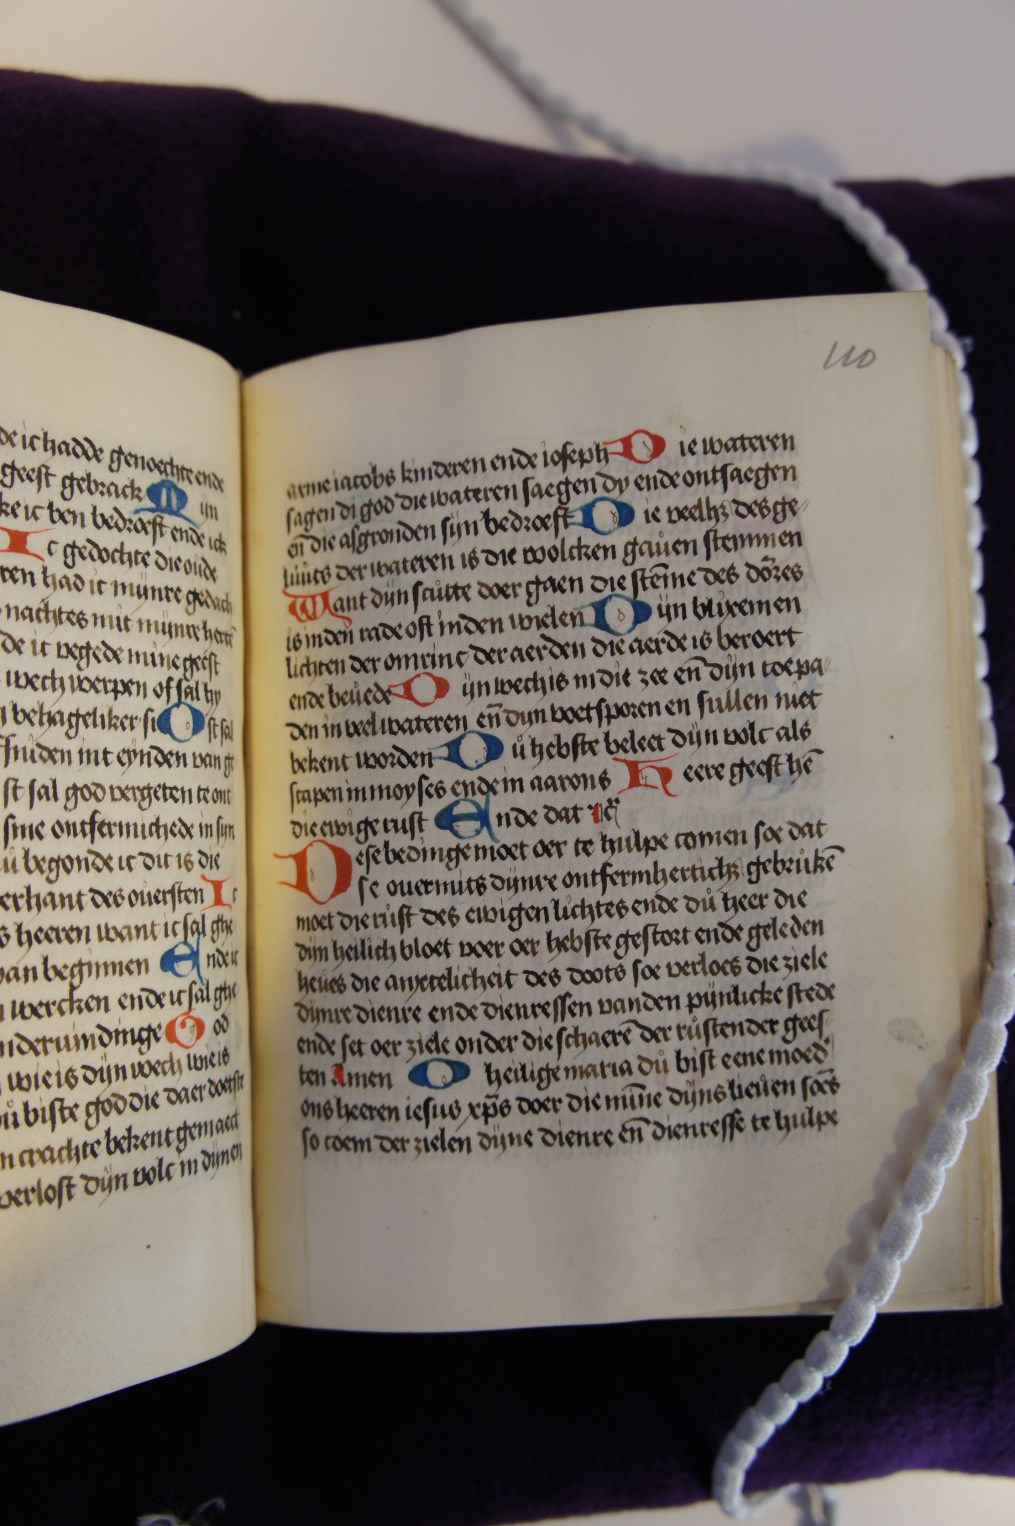 de ic hadde genoechte ende
geest gebrack M yn
ke ic ben bedroeft ende ick
Ic gedochte die oude
ren had ic mynre gedach
nachtes mit mynre herte
de ic vegede mine geest
wech werpen of sal hy
behageliker si Ost sal
inden int eynden van gt
st sal god vergeten te ont
sine ontfermichede in syn
u begonde ic dit is die
erhant des ouersten Ic
s heeren want ic sal ghe
van beginnen Ende ic
wercken ende ic sal ghe
nderuindinge God
wie is dyn wech wie is
ů biste god die daer doetste
n crachte bekent gemaect
verlost dyn volc in dynen
110
arme iacobs kinderen ende ioseph Die wateren
sagen di god die wateren saegen dy ende ontsaegen
en̄ die afgronden syn bedroeft Die veelhz des ge
luuts der wateren is die wolcken gauen stemmen
Want dyn scutte doer gaen die stēme des dōres
is inden rade oft inden wielen Dyn blixemen
lichten der omrinc der aerden die aerde is beroert
ende beuede Dyn wech is in die zee en̄ dyn toe pa
den in veel wateren en̄ dyn voetsporen en sullen niet
bekent worden Dů hebste beleet dyn volc als
scapen in moyses ende in aarons Heere geeft hē
die ewige rust Ende dat
Dese bedinge moet oer te hulpe comen soe dat
se ouermits dynre ontfermherticħ gebrukē
moet die rust des ewigen lichtes ende dů heer die
dyn heilich bloet voer oer hebste gestort ende geleden
heues die anxtelicheit des doots soe verloes die ziele
dynre dienre ende dienressen vanden pynlicke stede
ende set oer ziele onder die schaerē der rustender gees
ten Amen O heilige maria dů bist eene moed'
ons heeren iesus xp̄s doer die mīne dyns lieuen soēs
so coem der zielen dyne dienre en̄ dienresse te hulpe